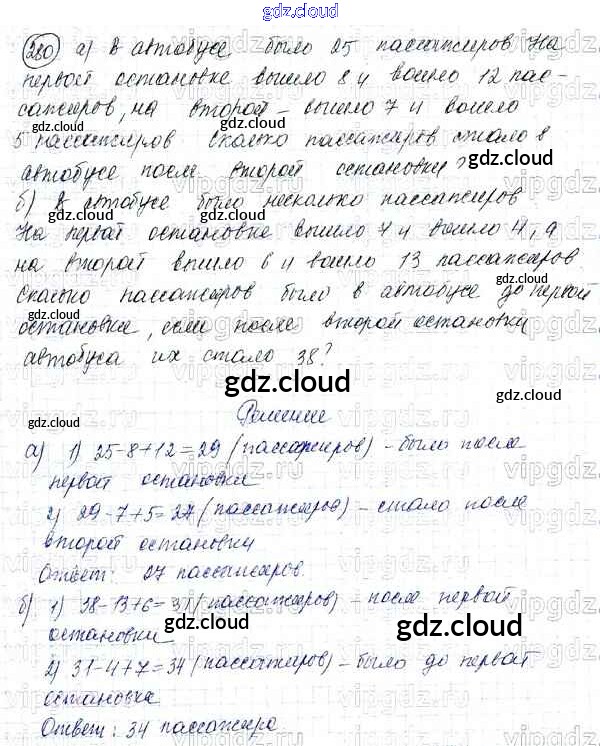 gdz.cloud
280) а) В автобусе было 25 пассажиров На
первой остановке вышло 8 и вошло 12 пас-
сажиров, на второй – вышло 7 и вошло
5 пассажиров Сколько пассажиров стало в
автобусе после второй остановки?
б) В автобусе было несколько пассажиров
На первой остановке вышло 7 и вошло 4, а
на второй вышло 6 и вошло 13 пассажиров
Сколько пассажиров было в автобусе до первой
остановки, если после второй остановки
автобуса их стало 38?
gdz.cloud
Решение
а) 1) 25-8+12=29 (пассажиров) – было после
первой остановки
2) 29-7+5=27 (пассажиров) – стало после
второй остановки
Ответ: 27 пассажиров.
б) 1) 38-13+6=31 (пассажиров) – после первой
остановки
gdz.cloud
2) 31-4+7=34 (пассажиров) – было до первой
остановка
Ответ: 34 пассажира